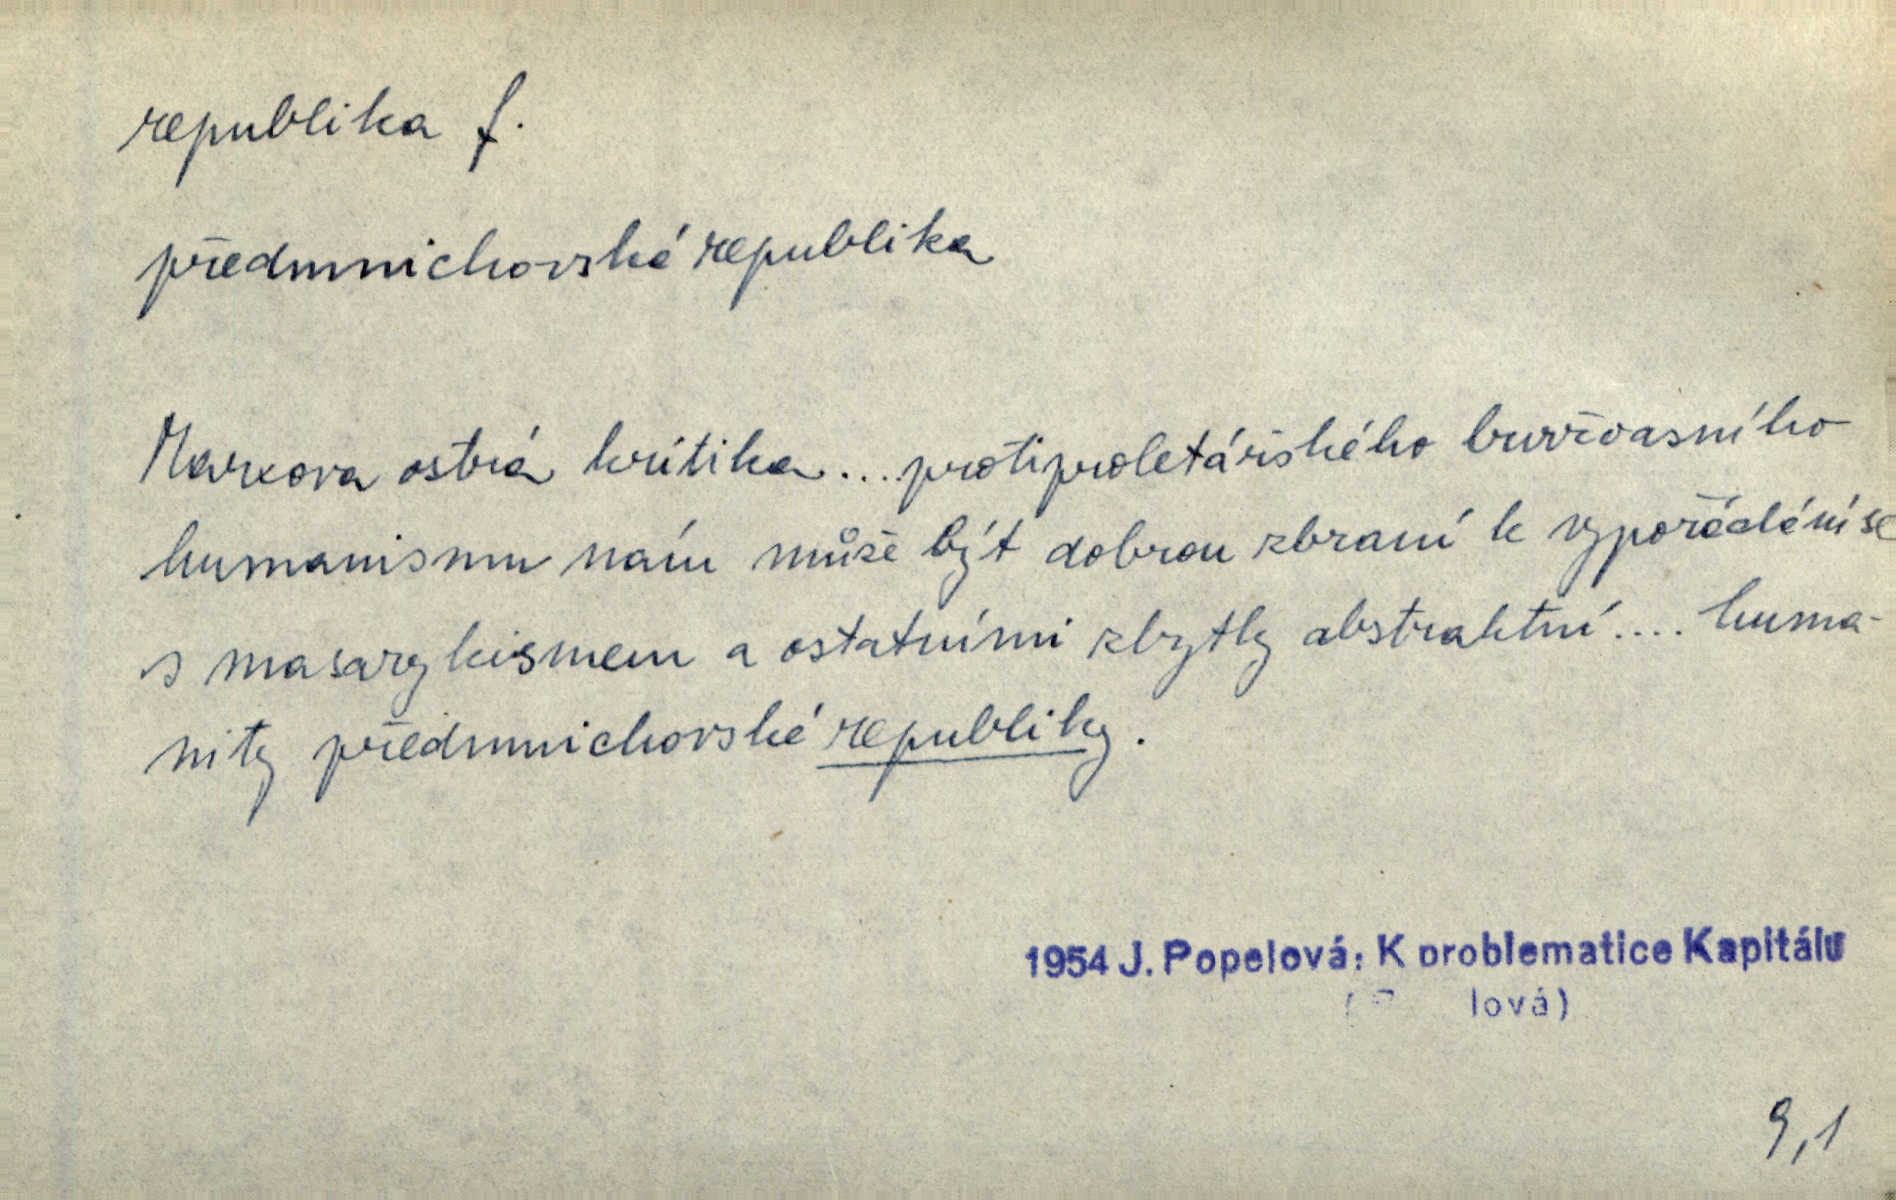 republika f.
předmnichovské republika
Marxova ostrá kritika .... protiproletářského buržoasního
humanismu nám může být dobrou zbraní k vypořádání se
s masarykismem a ostatními zbytky abstraktní .... huma-
nity předmnichovské republiky.
1954 J. Popelová: K problematice Kapitálu
lová)
9,1